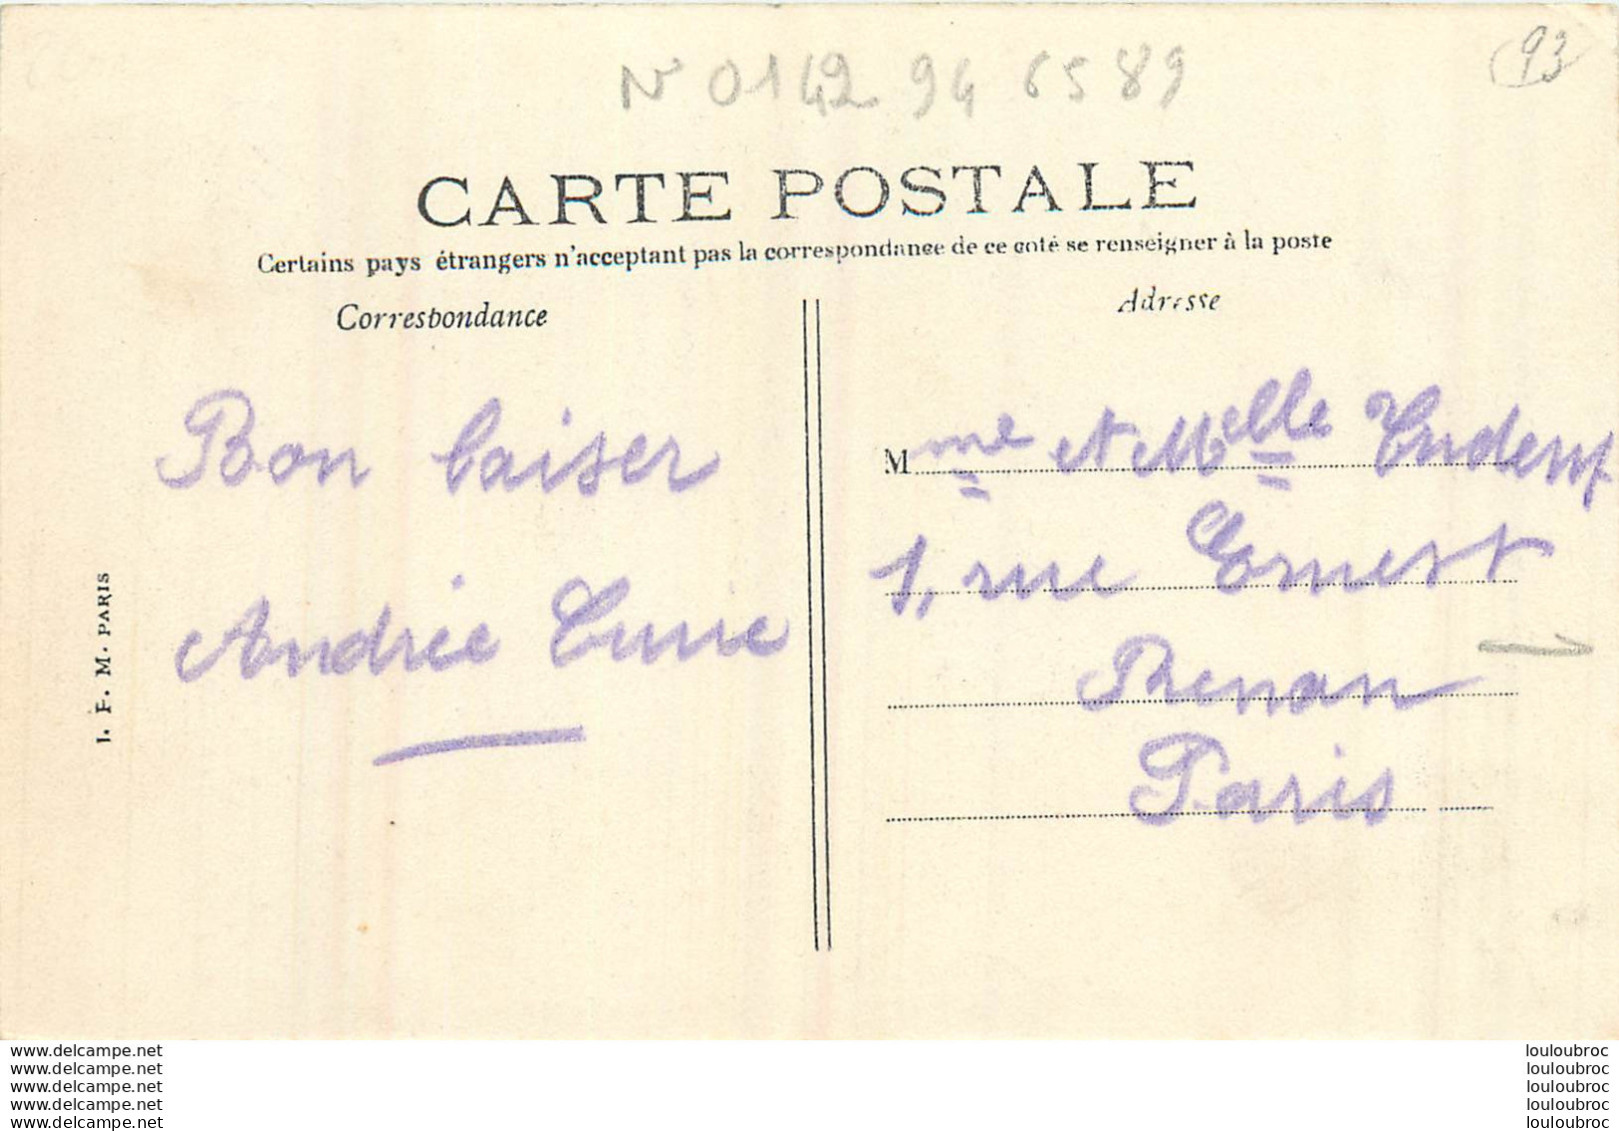 N° 0142 94 6589
93
CARTE POSTALE
Certains pays étrangers n'acceptant pas la correspondance de ce coté se renseigner à la poste
Correspondance
Adresse
Bon baiser
Andrée
I. P. M. PARIS
Mme et Melle
1, rue Ernest
Renan
Paris
www.delcampe.net
www.delcampe.net
www.delcampe.net
www.delcampe.net
www.delcampe.net
louloubroc
louloubroc
louloubroc
louloubroc
louloubroc